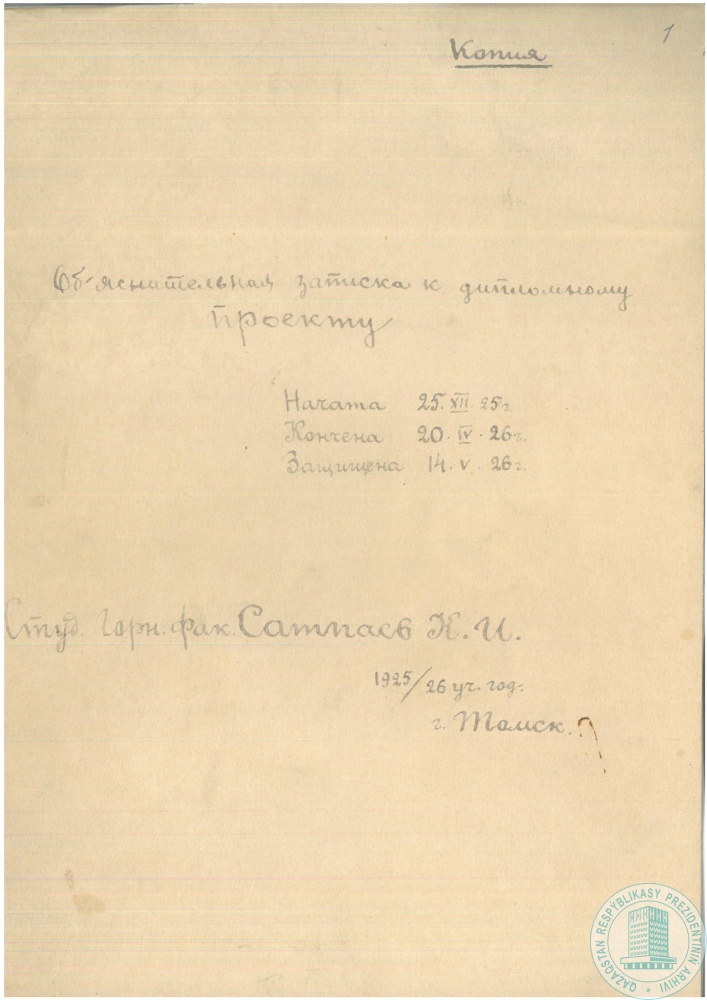 1
Копия
Об'яснительная записка к дипломному
проекту
Начата 25. XII. 25г.
Кончена 20. IV. 26г.
Защищена 14. V. 26г.
Студ. Горн. фак. Сатпаев К. И.
1925/26 уч. год.
г. Томск.
QAZAQSTAN RESPÝBLIKASY PREZIDENTINIŃ ARHIVI